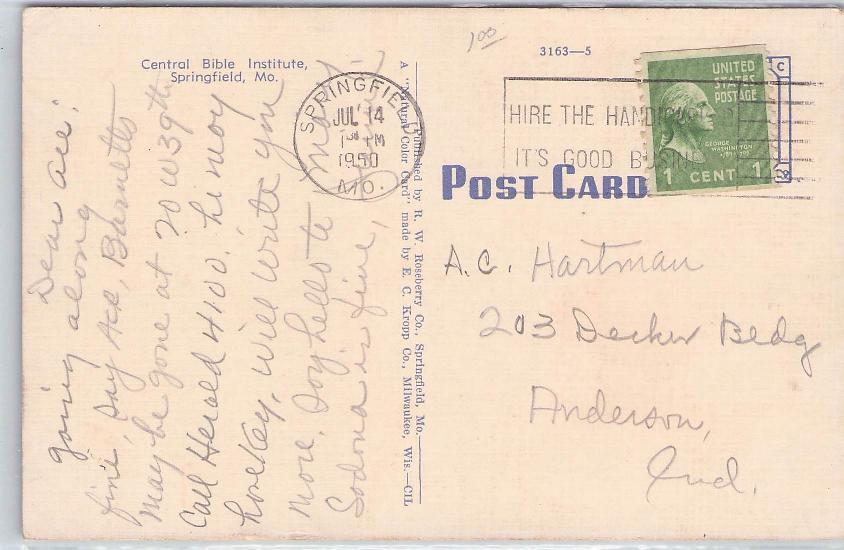 Central Bible Institute,
Springfield, Mo.
3163—5
1.00
SPRINGFIELD
JUL 14
PM
1950
MO.
HIRE THE HANDICAPPED
IT'S GOOD BUSINESS
UNITED
STATES
POSTAGE
GEORGE
WASHINGTON
1 CENT 1
POST CARD
A "Natural Color Card" made by E. C. Kropp Co., Milwaukee, Wis.—CIL
Published by R. W. Roseberry Co., Springfield, Mo.
Dear all:
going along
fine, say Ack, Barnetts
maybe gone at 20 W 39th
Call Herald 4100, he may
have key, will write you
more. Say hello to
Sodona is fine,
A.C. Hartman
203 Decker Bldg
Anderson,
Ind.